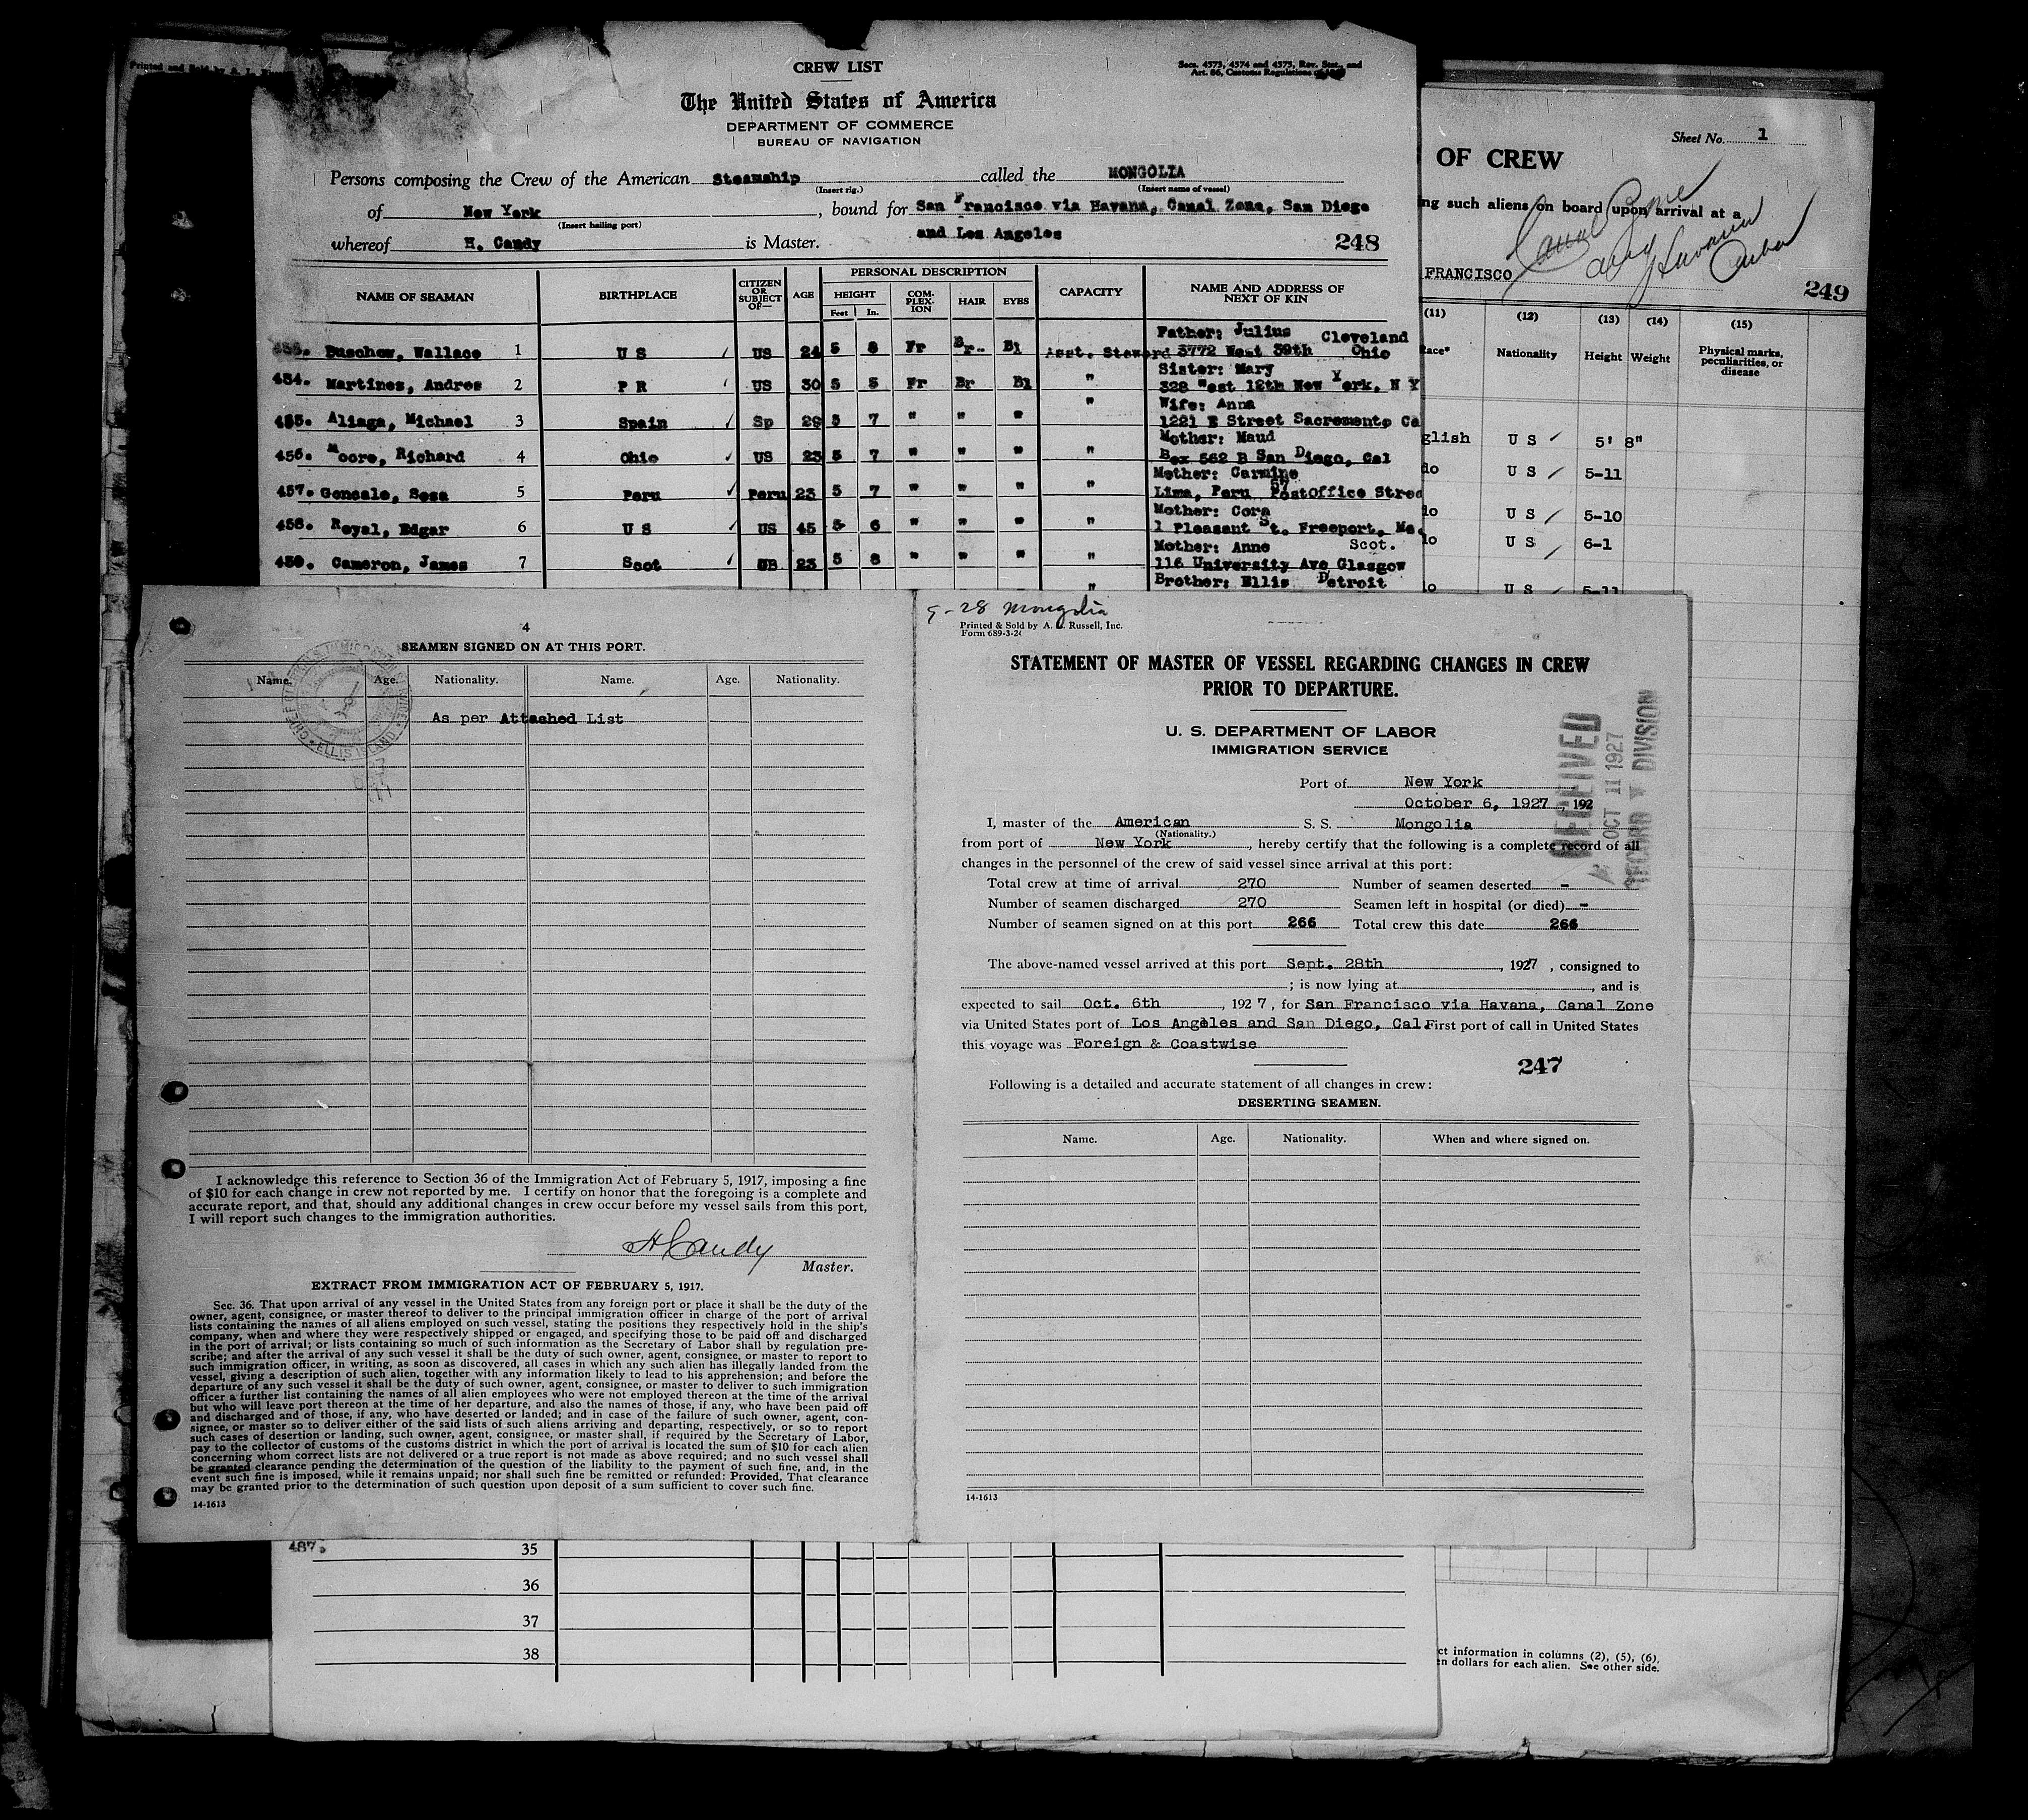 Printed and Sold by A. L.
CREW LIST
Secs. 4573, 4574 and 4575, Rev. Stat., and
Art. 86, Customs Regulations of
The United States of America
DEPARTMENT OF COMMERCE
BUREAU OF NAVIGATION
Persons composing the Crew of the American Steamship called the MONGOLIA
(Insert rig.) (Insert name of vessel)
of New York , bound for San Francisco via Havana, Canal Zone, San Diego
(Insert hailing port)
whereof H. Candy is Master. and Los Angeles 248
NAME OF SEAMAN BIRTHPLACE CITIZEN OR SUBJECT OF— AGE PERSONAL DESCRIPTION CAPACITY NAME AND ADDRESS OF NEXT OF KIN
HEIGHT COM-PLEX-ION HAIR EYES
Feet In.
Father: Julius Cleveland
Buschow, Wallace 1 U S US 24 5 8 Fr Br Bl Asst. Steward 3772 West 39th Ohio
Sister: Mary
454. Martines, Andres 2 P R US 30 5 5 Fr Br Bl " 328 West 12th New York, N Y
Wife: Anna
455. Aliaga, Michael 3 Spain Sp 29 5 7 " " " " 1221 E Street Sacremento Ca
Mother: Maud
456. Moore, Richard 4 Ohio US 23 5 7 " " " " Box 562 B San Diego, Cal
Mother: Carmine
457. Goncale, Sosa 5 Peru Peru 23 5 7 " " " " Lima, Peru 57 Postoffice Stree
Mother: Cora
458. Royal, Edgar 6 U S US 45 5 6 " " " " 1 Pleasant St. Freeport, Me
Mother: Anne Scot.
459. Cameron, James 7 Scot GB 23 5 8 " " " " 116 University Ave Glasgow
" Brother: Ellis Detroit
Sheet No. 1
OF CREW
ng such aliens on board upon arrival at a
Canal Zone
and Havana
Cuba
FRANCISCO
249
(11) (12) (13) (14) (15)
Race* Nationality Height Weight Physical marks, peculiarities, or disease
glish U S 5' 8"
do U S 5-11
do U S 5-10
do U S 6-1
do U S 5-11
4
SEAMEN SIGNED ON AT THIS PORT.
Name. Age. Nationality. Name. Age. Nationality.
As per Attached List
ELLIS ISLAND
I acknowledge this reference to Section 36 of the Immigration Act of February 5, 1917, imposing a fine
of $10 for each change in crew not reported by me. I certify on honor that the foregoing is a complete and
accurate report, and that, should any additional changes in crew occur before my vessel sails from this port,
I will report such changes to the immigration authorities.
H Candy
Master.
EXTRACT FROM IMMIGRATION ACT OF FEBRUARY 5, 1917.
Sec. 36. That upon arrival of any vessel in the United States from any foreign port or place it shall be the duty of the
owner, agent, consignee, or master thereof to deliver to the principal immigration officer in charge of the port of arrival
lists containing the names of all aliens employed on such vessel, stating the positions they respectively hold in the ship's
company, when and where they were respectively shipped or engaged, and specifying those to be paid off and discharged
in the port of arrival; or lists containing so much of such information as the Secretary of Labor shall by regulation pre-
scribe; and after the arrival of any such vessel it shall be the duty of such owner, agent, consignee, or master to report to
such immigration officer, in writing, as soon as discovered, all cases in which any such alien has illegally landed from the
vessel, giving a description of such alien, together with any information likely to lead to his apprehension; and before the
departure of any such vessel it shall be the duty of such owner, agent, consignee, or master to deliver to such immigration
officer a further list containing the names of all alien employees who were not employed thereon at the time of the arrival
but who will leave port thereon at the time of her departure, and also the names of those, if any, who have been paid off
and discharged and of those, if any, who have deserted or landed; and in case of the failure of such owner, agent, con-
signee, or master so to deliver either of the said lists of such aliens arriving and departing, respectively, or so to report
such cases of desertion or landing, such owner, agent, consignee, or master shall, if required by the Secretary of Labor,
pay to the collector of customs of the customs district in which the port of arrival is located the sum of $10 for each alien
concerning whom correct lists are not delivered or a true report is not made as above required; and no such vessel shall
be granted clearance pending the determination of the question of the liability to the payment of such fine, and, in the
event such fine is imposed, while it remains unpaid; nor shall such fine be remitted or refunded: Provided, That clearance
may be granted prior to the determination of such question upon deposit of a sum sufficient to cover such fine.
14-1613
9-28 Mongolia
Printed & Sold by A. L. Russell, Inc.
Form 689-3-26
STATEMENT OF MASTER OF VESSEL REGARDING CHANGES IN CREW
PRIOR TO DEPARTURE.
U. S. DEPARTMENT OF LABOR
IMMIGRATION SERVICE
RECEIVED
OCT 11 1927
RECORD DIVISION
Port of New York
October 6, 1927, 192
I, master of the American S. S. Mongolia
(Nationality.)
from port of New York, hereby certify that the following is a complete record of all
changes in the personnel of the crew of said vessel since arrival at this port:
Total crew at time of arrival 270 Number of seamen deserted -
Number of seamen discharged 270 Seamen left in hospital (or died) -
Number of seamen signed on at this port 266 Total crew this date 266
The above-named vessel arrived at this port Sept. 28th, 1927, consigned to
; is now lying at , and is
expected to sail Oct. 6th, 1927, for San Francisco via Havana, Canal Zone
via United States port of Los Angeles and San Diego, Cal. First port of call in United States
this voyage was Foreign & Coastwise
247
Following is a detailed and accurate statement of all changes in crew:
DESERTING SEAMEN.
Name. Age. Nationality. When and where signed on.
14-1613
487. 35
36
37
38
ct information in columns (2), (5), (6),
en dollars for each alien. See other side.